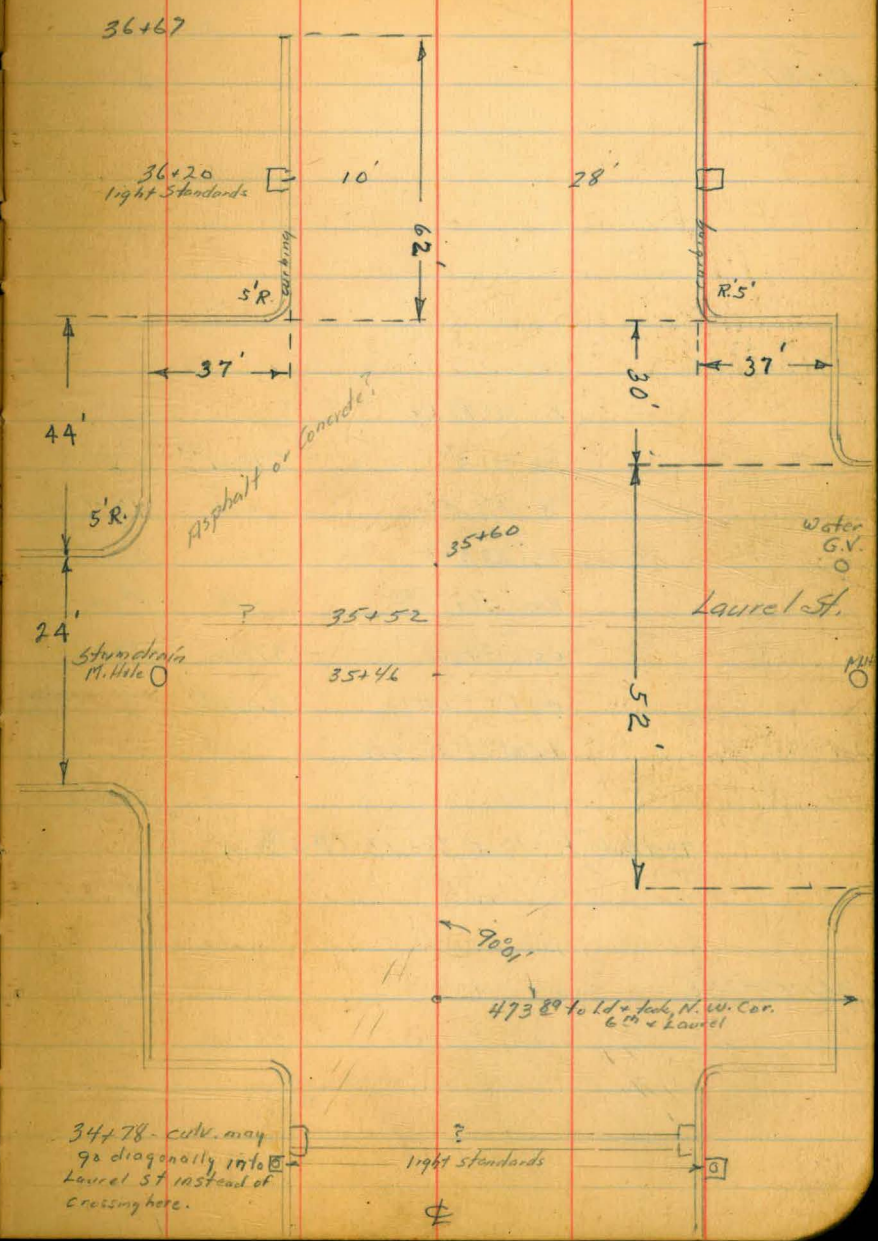 36+67
36+20
light Standards
10'
28'
62'
curbing
curbing
5'R.
R.5'
37'
30'
37'
44'
Asphalt or Concrete?
5'R.
35+60
Water
G.V.
Laurel St.
?
35+52
24'
Stormdrain
M. Hole
35+46
MH
52'
90°01'
473 89 to Ld + tack, N.W. Cor.
6th & Laurel
34+78 - culv. may
go diagonally into
Laurel St instead of
crossing here.
?
light standards
℄